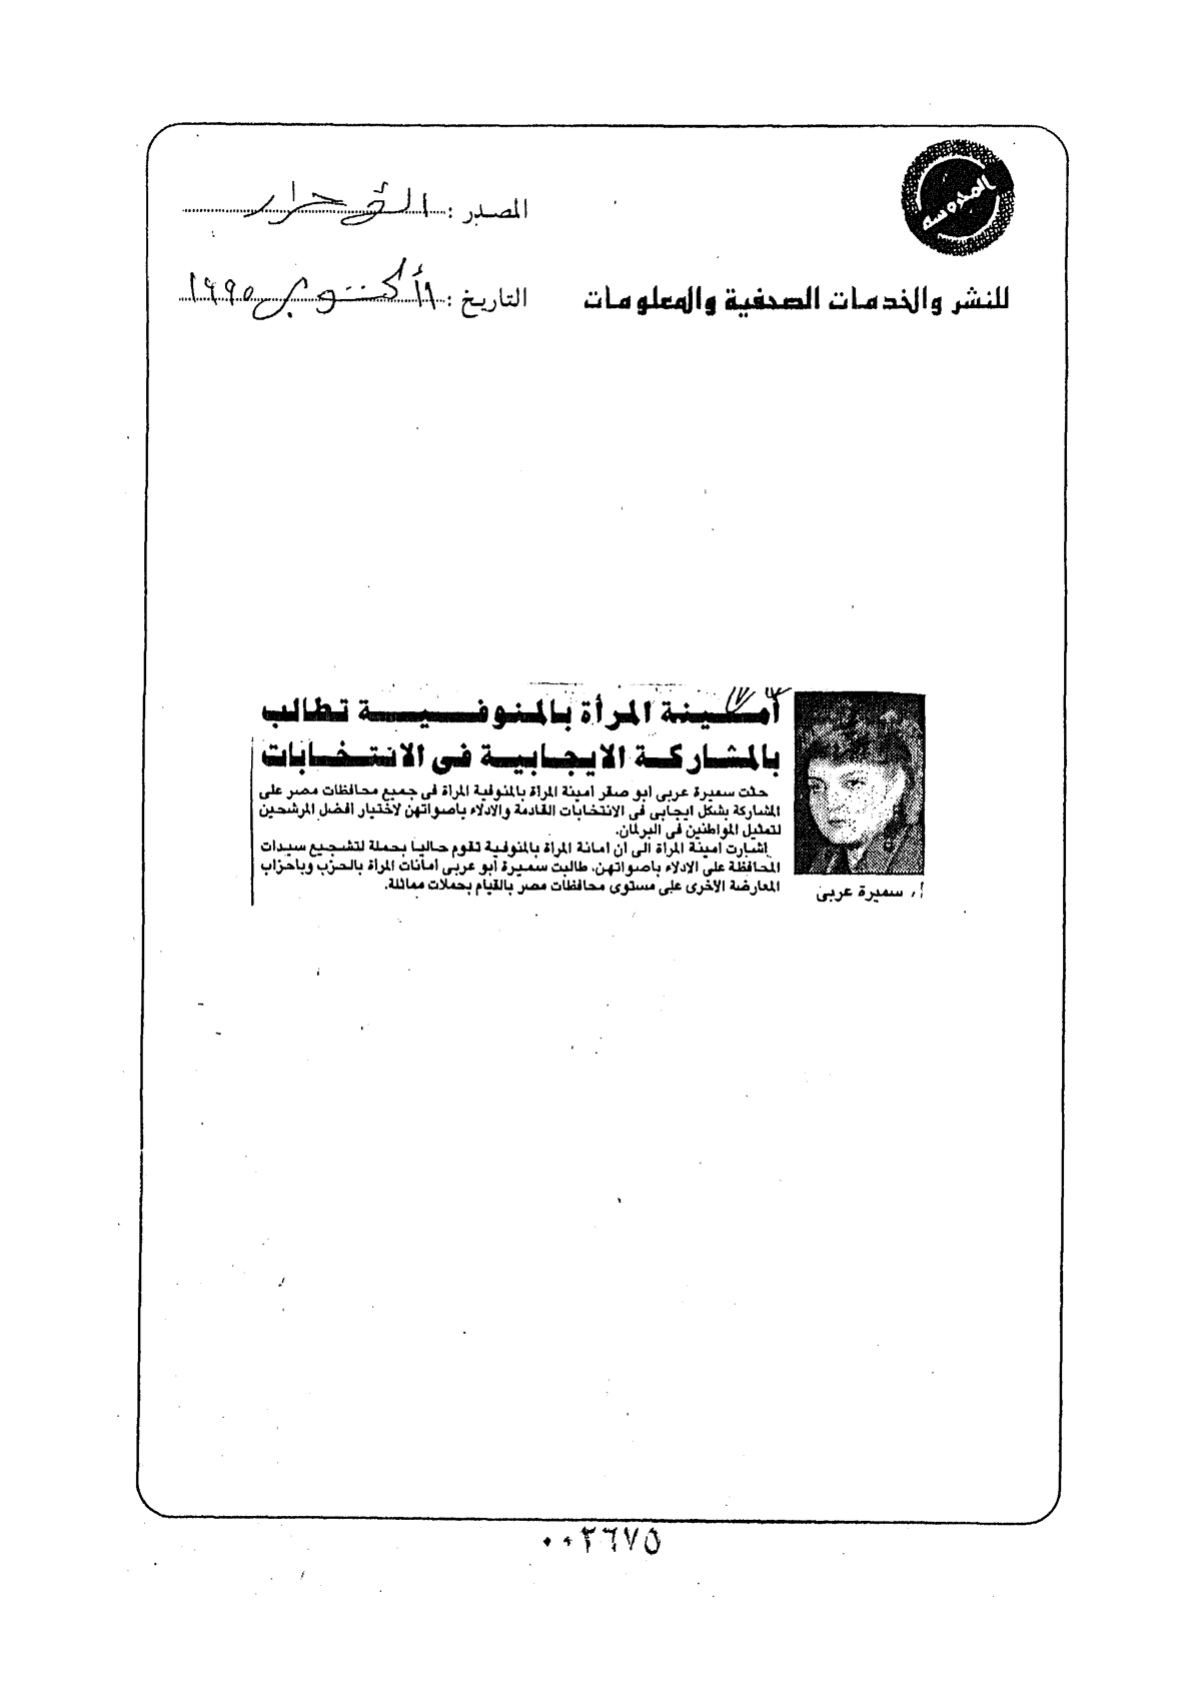 المحروسة
المصدر : الأحرار
للنشر والخدمات الصحفية والمعلومات
التاريخ : أكتوبر ١٩٩٥
أمــينة المرأة بالمنوفـيــة تطالب
بالمشاركة الايجابية فى الانتخابات
حثت سميرة عربى ابو صقر امينة المراة بالمنوفية المراة فى جميع محافظات مصر على
المشاركة بشكل ايجابى فى الانتخابات القادمة والادلاء باصواتهن لاختيار افضل المرشحين
لتمثيل المواطنين فى البرلمان.
اشارت امينة المراة الى ان امانة المراة بالمنوفية تقوم حاليا بحملة لتشجيع سيدات
المحافظة على الادلاء باصواتهن. طالبت سميرة أبو عربى امانات المراة بالحزب وباحزاب
المعارضة الاخرى على مستوى محافظات مصر بالقيام بحملات مماثلة.
أ. سميرة عربى
٠٠٢٦٧٥